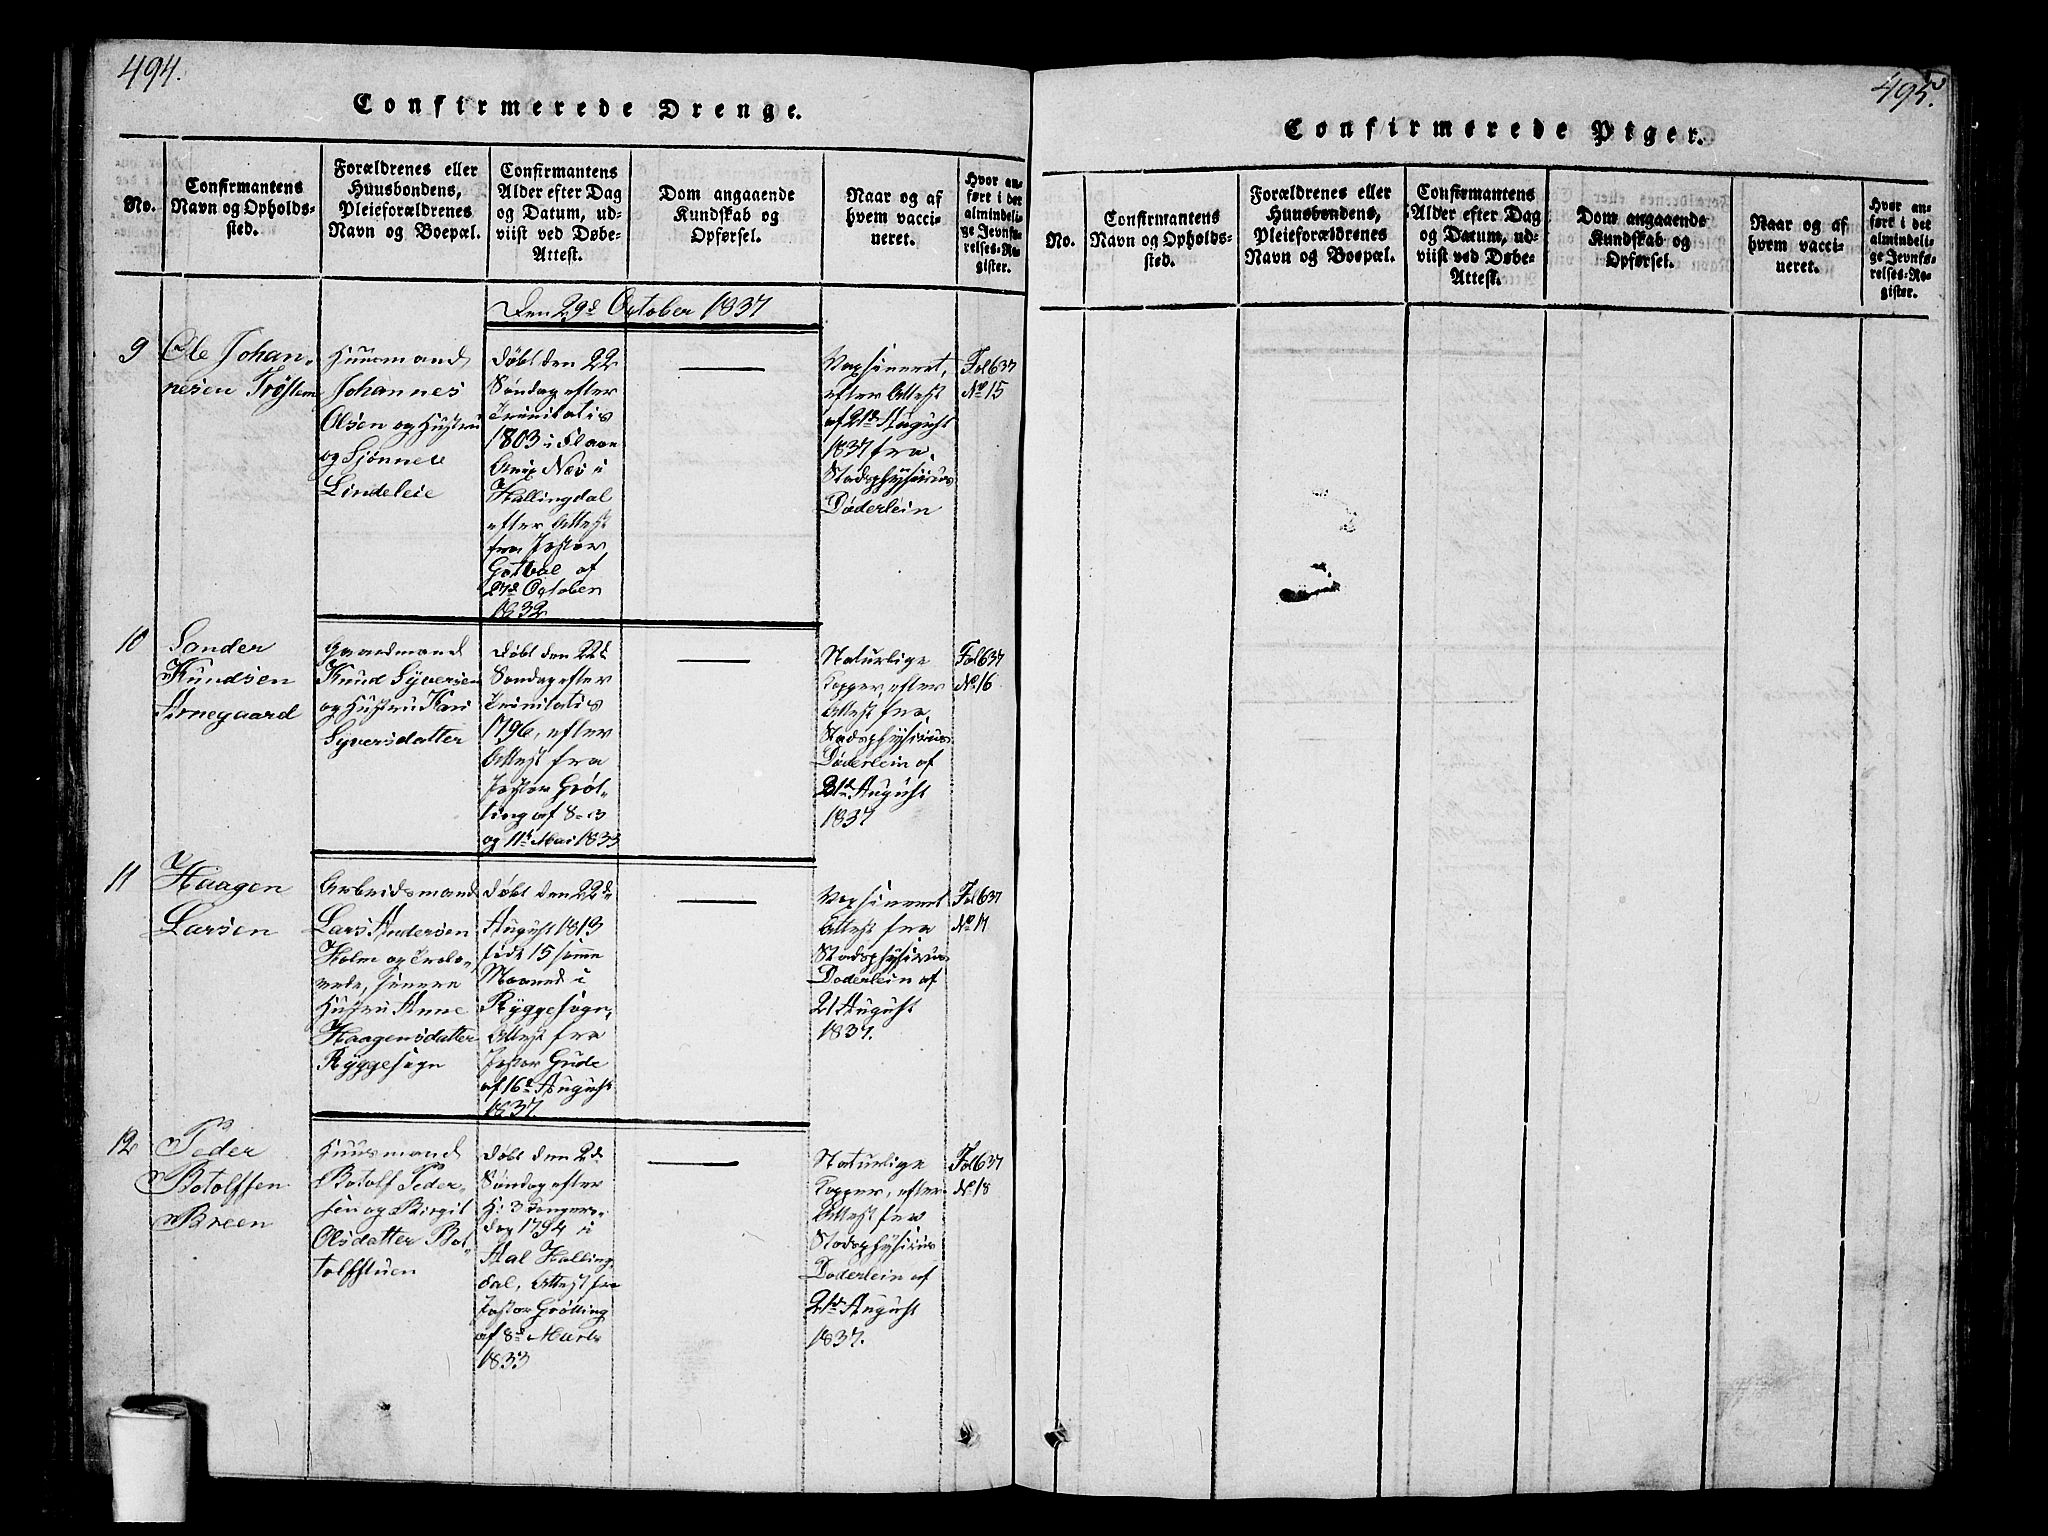 494.
Confirmerede Drenge.
No.
Confirmantens
Navn og Opholds-
sted.
Forældrenes eller
Huusbondens,
Pleieforældrenes
Navn og Boepæl.
Confirmantens
Alder efter Dag
og Datum, ud-
viist ved Døbe-
Attest.
Dom angaaende
Kundskab og
Opførsel.
Naar og af
hvem vacci-
neret.
Hvor an-
ført i det
almindeli-
ge Jevnfø-
relses-Re-
gister.
Den 29d October 1837
9
Ole Johan-
nesen Trøstem
Huusmand
Johannes
Olsen og Hustru
og Sjønnei
Lindeleie
Døbt den 22
Søndag efter
Trinitatis
1803 i
Næs i
Hallingdal
efter Attest
fra Pastor
af
October
1832
Vaxsineret,
efter Attest
af 21d August
1837 fra
Stadsphysicus
Døderlein
Fol 637
No 15
10
Sander
Knudsen
Arnegaard
Gaardmand
Knud Syversen
og Hustru Kari
Syversdatter
Døbt den 22d
Søndag efter
Trinitatis
1796, efter
Attest fra
Pastor Grøt-
ting af 8-
og 11t Mai 1833
Naturlige
Kopper, efter
Attest fra
Stadsphysicus
Døderlein af
21d August
1837
Fol 637
No 16
11
Haagen
Larsen
Arbeidsmand
Lars Andersen
Holm og Trolo-
vede, senere
Hustru Anne
Haagensdatter
Ryggesogn
Døbt den 22de
August 1813
født 15 samme
Maaned i
Ryggesogn,
Attest fra
Pastor Gude
af 16d August
1837.
Vaxsineret
Attest fra
Stadsphysicus
Døderlein af
21 August
1837.
Fol 637
No 17
12
Peder
Botolfsen
Breen
Huusmand
Botolf Peder-
sen og Birgit
Olsdatter Bot-
tolfstuen
Døbt den 2de
Søndag efter
H: 3 Konger-
dag 1794 i
Aal Halling-
dal, Attest fra
Pastor Grøtting
af 8d Marts
1833
Naturlige
Kopper, efter
Attest fra
Stadsphysicus
Døderlein af
21d August
1837.
Fol 637
No 18
495.
Confirmerede Piger.
No.
Confirmantens
Navn og Opholds-
sted.
Forældrenes eller
Huusbondens,
Pleieforældrenes
Navn og Boepæl.
Confirmantens
Alder efter Dag
og Datum, ud-
viist ved Døbe-
Attest.
Dom angaaende
Kundskab og
Opførsel.
Naar og af
hvem vacci-
neret.
Hvor an-
ført i det
almindeli-
ge Jevnfø-
relses-Re-
gister.